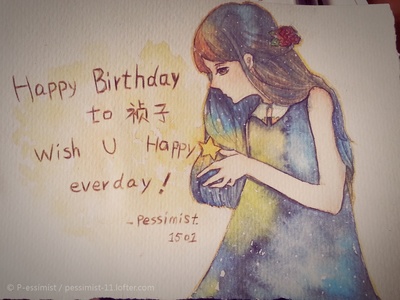 Happy Birthday
to 祯子
Wish U Happy
everday!
-Pessimist
1501
© P-essimist / pessimist-11.lofter.com